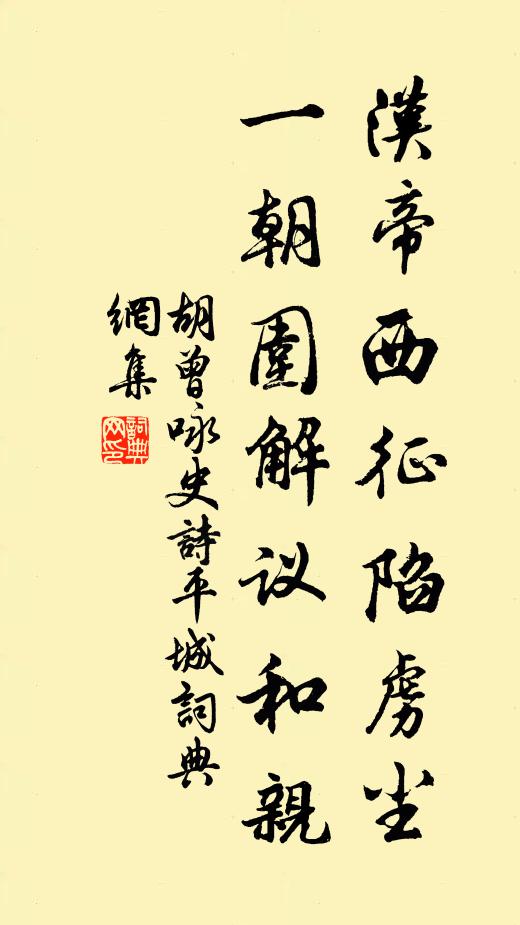 漢帝西征陷虜尘
一朝圍解议和親
胡曾咏史詩平城詞典
網集
詞典
网印